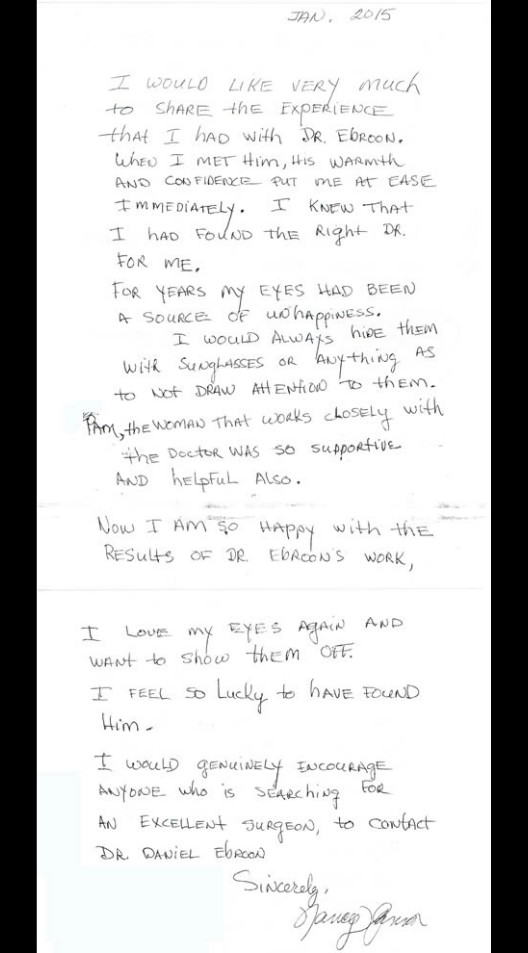 JAN. 2015
I WOULD LIKE VERY much
to SHARE the EXPERIENCE
that I HAD with DR. EBROON.
WHEN I MET Him, HIS WARMth
AND CONFIDENCE PUT ME AT EASE
IMMEDIATELY. I KNEW THAT
I HAD FOUND the Right DR.
FOR ME.
FOR YEARS MY EYES HAD BEEN
A SOURCE OF unhappiness.
I WOULD ALWAYS hide them
with SUNGLASSES OR ANYthing AS
to NOT DRAW Attention to them.
PAM, the WOMAN THAT WORKS closely with
the DOCTOR WAS so supportive
AND helpful Also.
NOW I AM SO HAPPY with the
RESults OF DR EBROON'S WORK,
I LOVE my EYES AgAin AND
WANT to show them OFF.
I FEEL so Lucky to hAVE FOUND
Him -
I WOULD GENUINELY ENCOURAGE
ANYONE who is SEARching FOR
AN EXCELLENT SURGEON, to CONTACT
DR. DANIEL EBROON
Sincerely,
Nancy